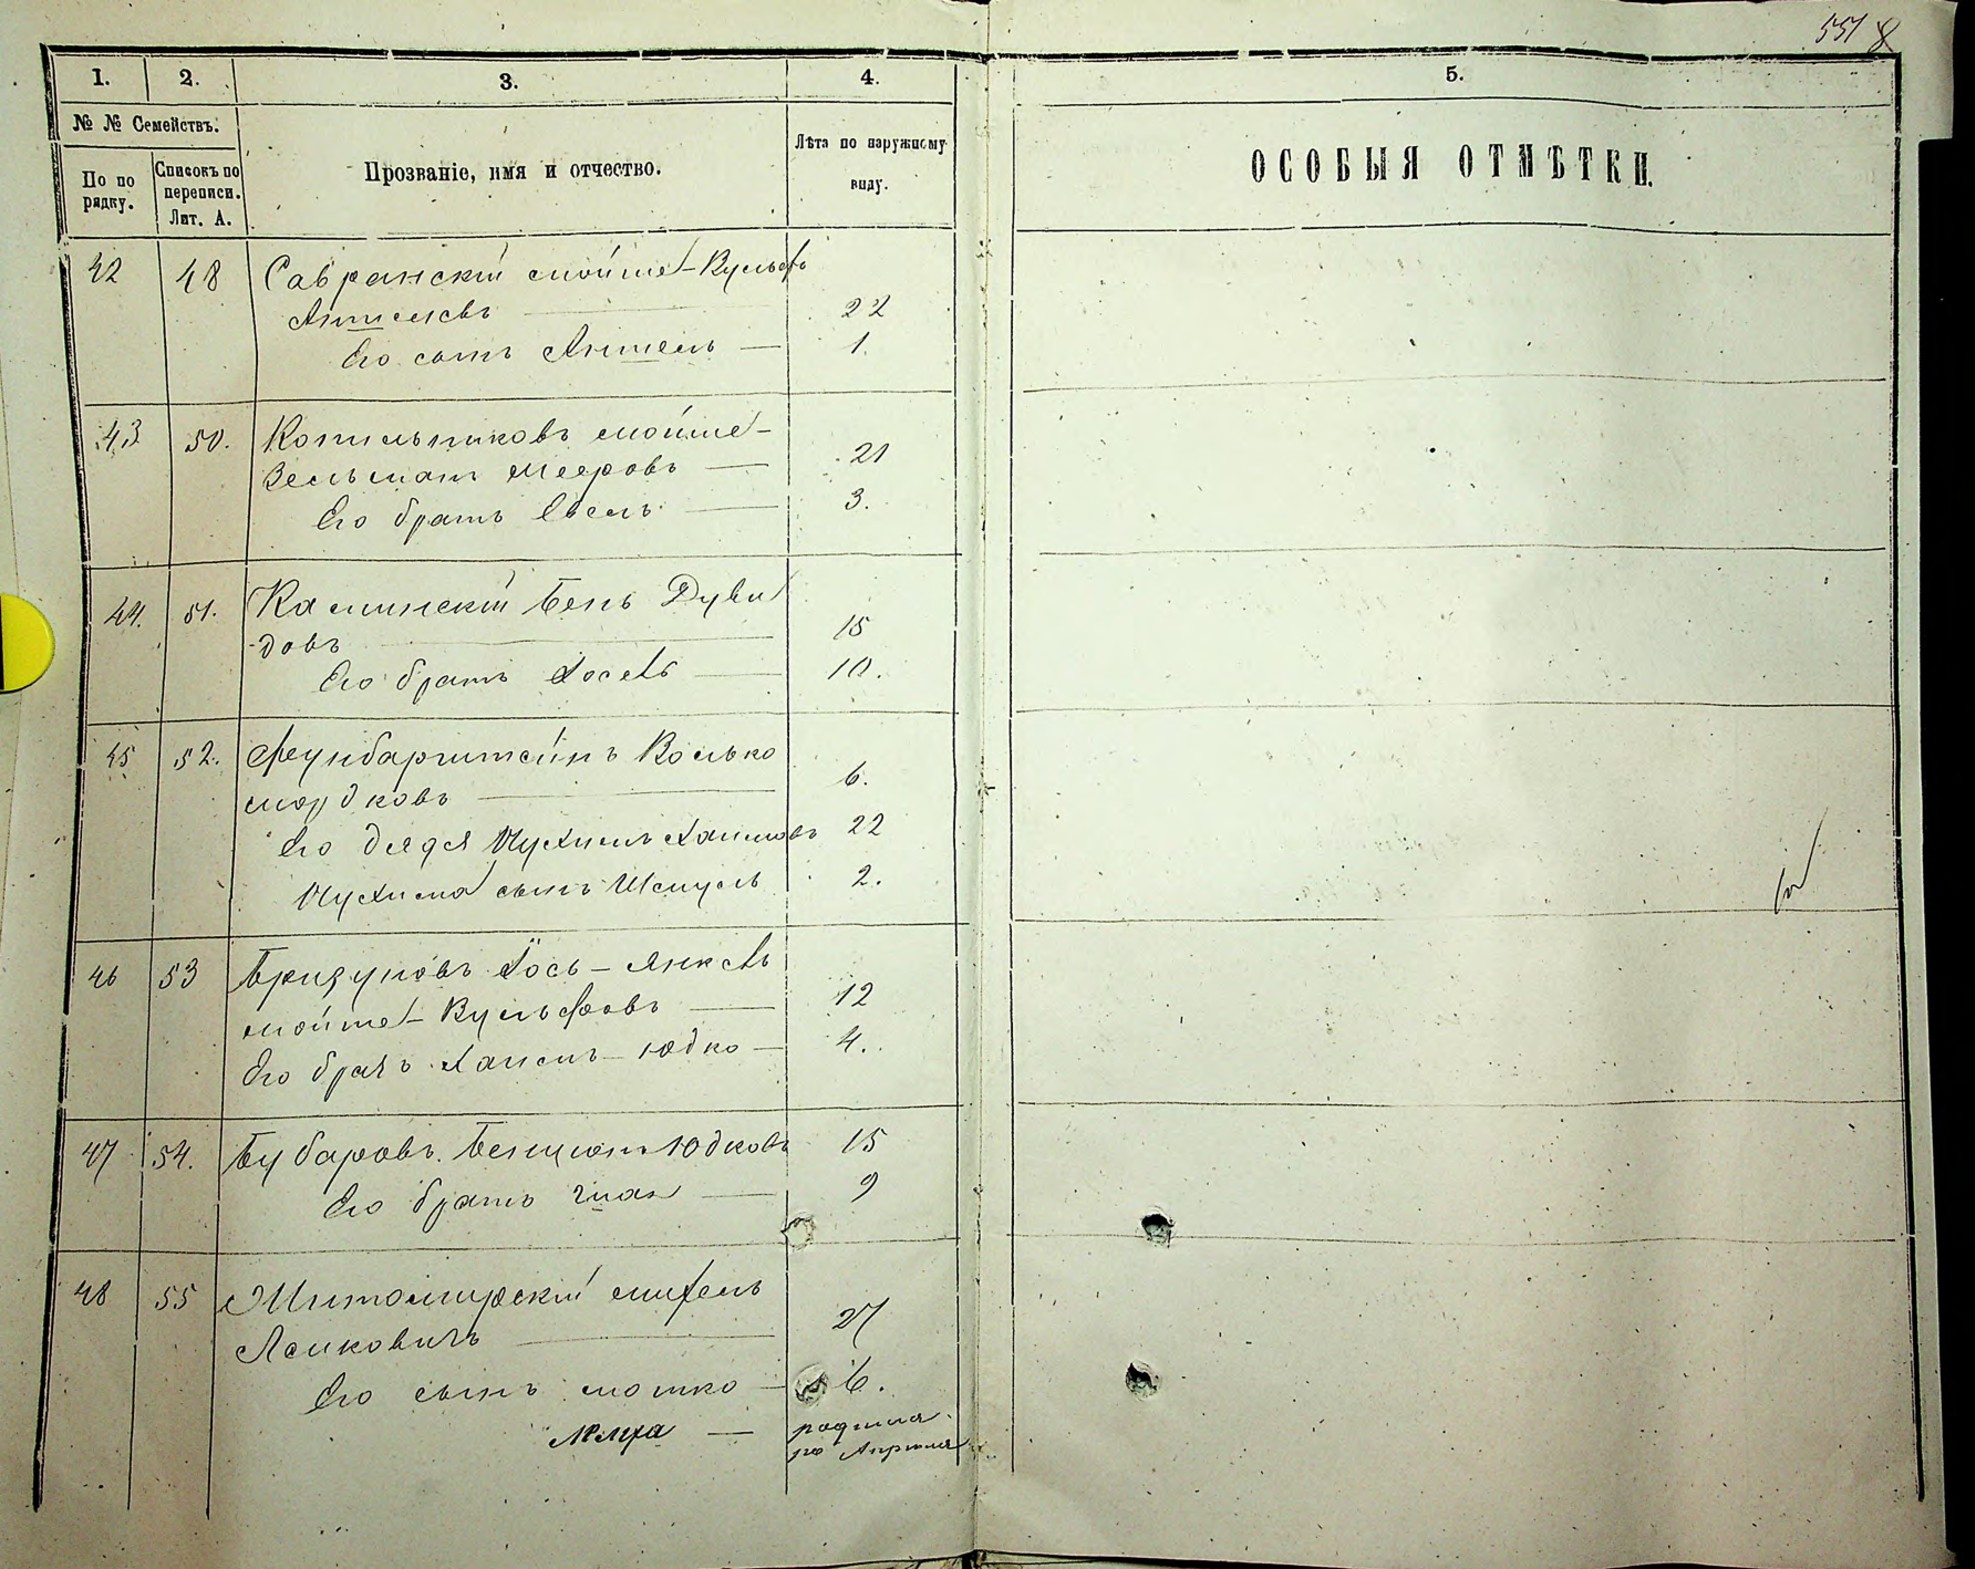 551 8
1.
2.
3.
4.
5.
№ № Семействъ.
По по
рядку.
Списокъ по
переписи.
Лит. А.
Прозваніе, имя и отчество.
Лѣта по наружному
виду.
ОСОБЫЯ ОТМѢТКИ.
42 48 Савранскій Мойше-Вульфъ
Аншелевъ — 22
Его сынъ Аншель — 1.
43 50. Котельниковъ Мойше-
Зельманъ Мееровъ — 21
Его братъ Евель — 3.
44. 51. Каминскій Бень Дуви
-довъ — 15
Его братъ Іосевъ — 10.
45 52. Волько
Мордковъ — 6.
Его дядя Нухимъ Хаимовъ 22
Нухима сынъ Шмуль 2.
46 53 Іось-Янкель
Мойше-Вульфовъ — 12
Его братъ Юдко — 4.
47 54. Бубаровъ Бенціонъ Юдковъ 15
Его братъ — 9
48 55 Житомирскій Михель
Лейковичъ — 27
Его сынъ Мошко — 6.
Лейба — родился
Апреля